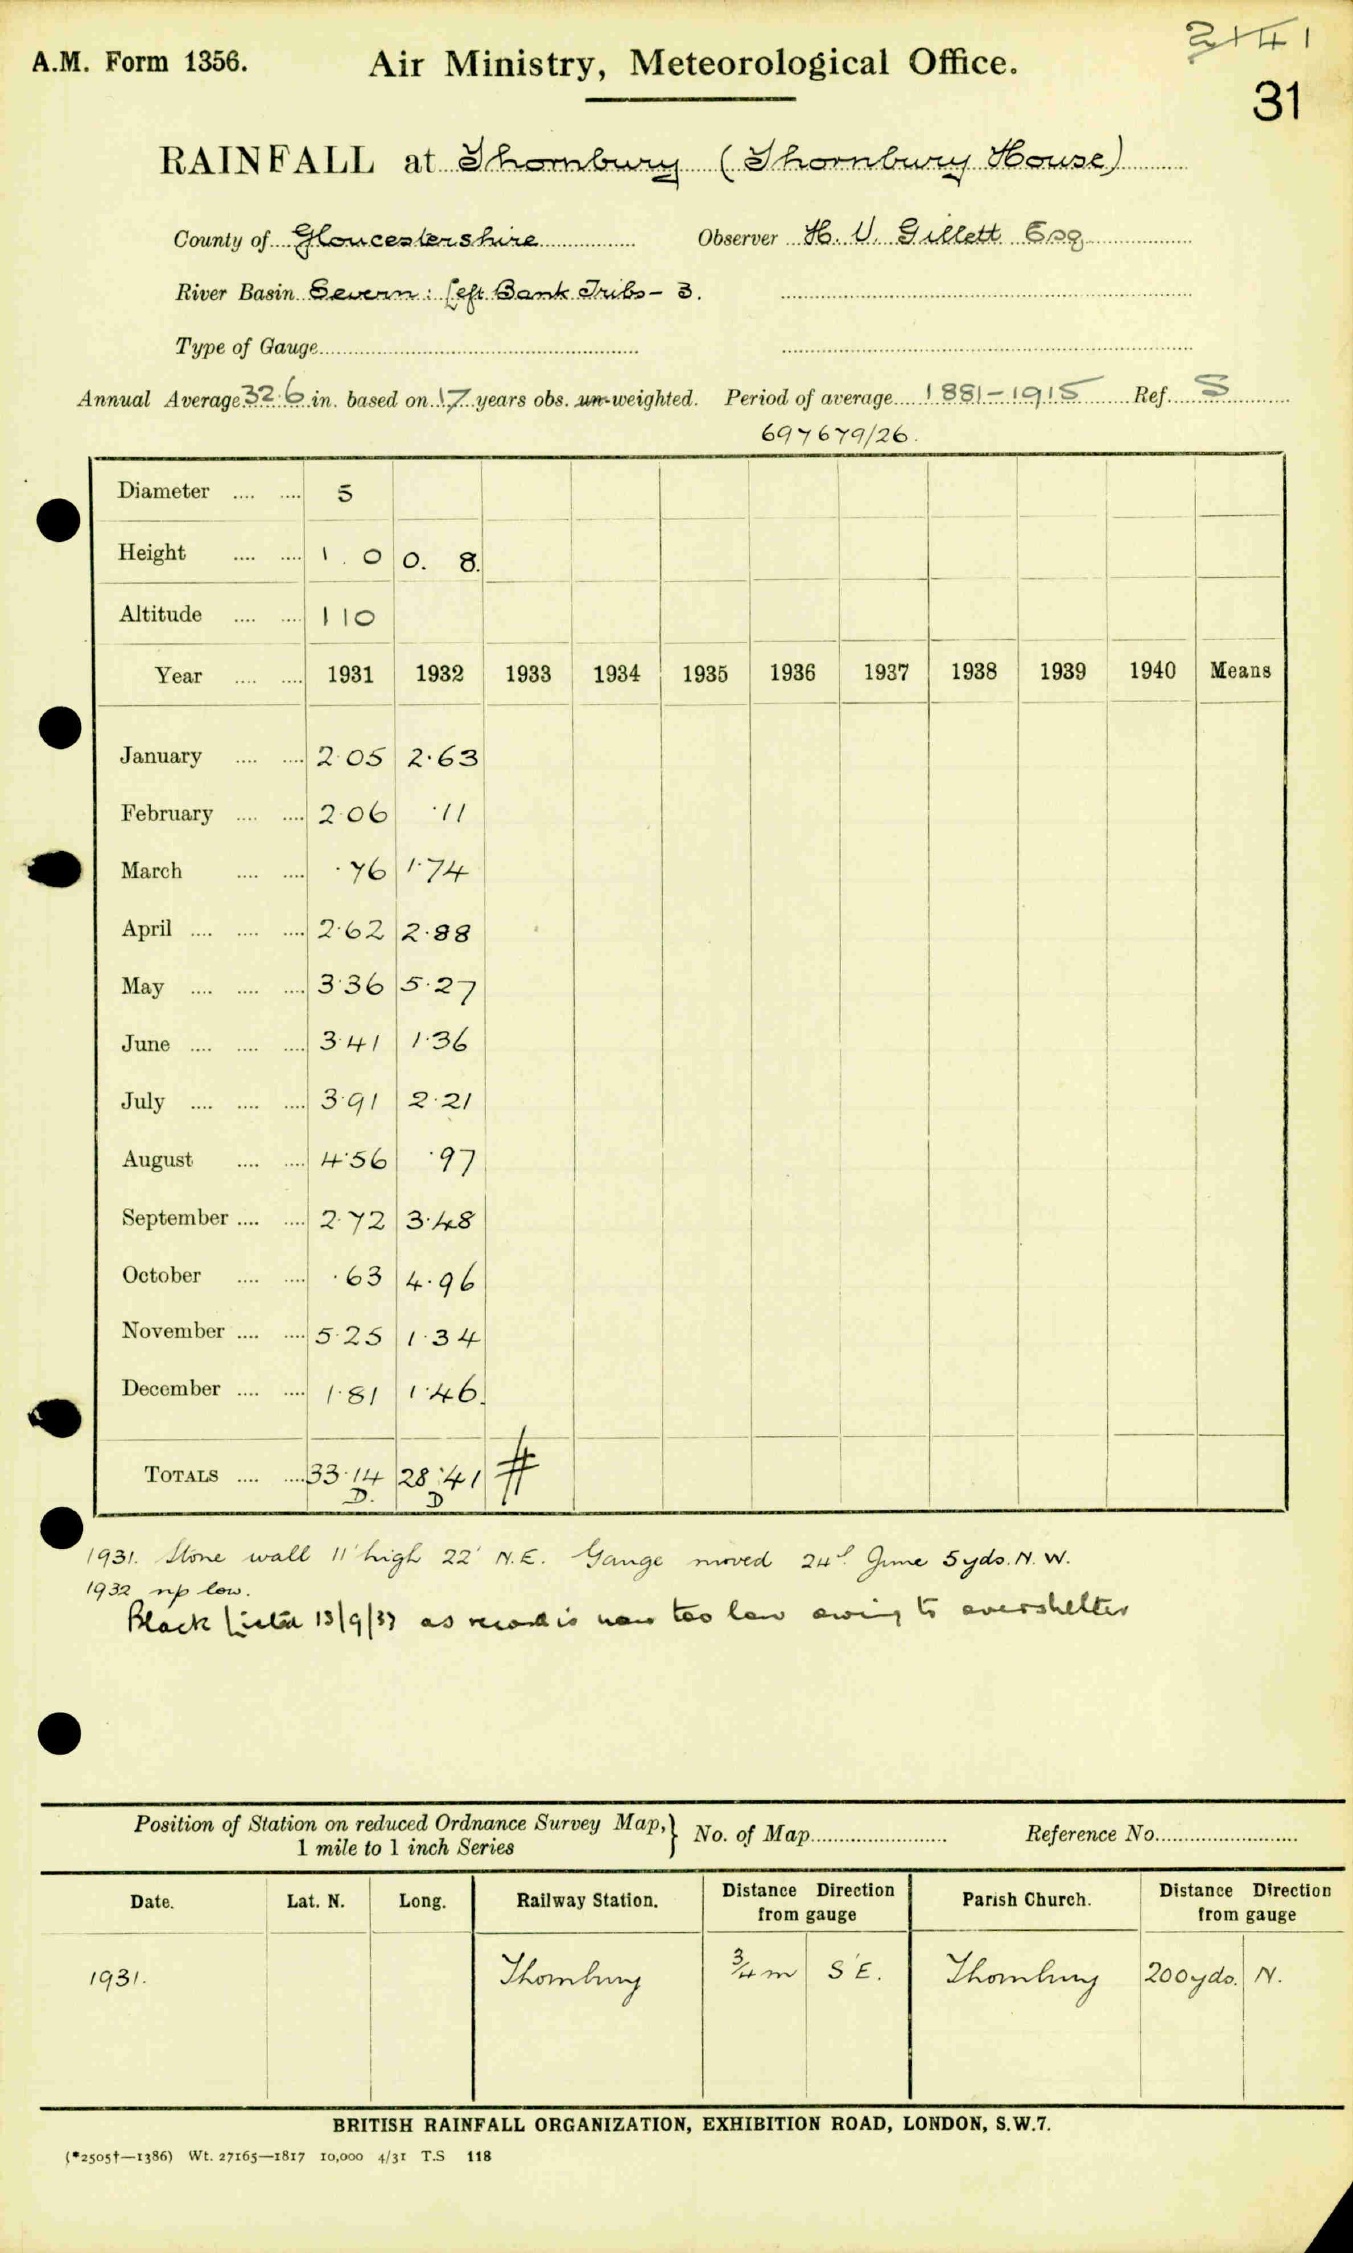 A.M. Form 1356. Air Ministry, Meteorological Office.
31
RAINFALL at Thornbury (Thornbury House)
County of Gloucestershire Observer H. V. Gillett Esq
River Basin Severn: Left Bank Tribs - 3.
Type of Gauge
Annual Average 32.6 in. based on 17 years obs. un-weighted. Period of average 1881-1915 Ref. S
697679/26.
Diameter .... .... 5
Height .... .... 1.0 0.8.
Altitude .... .... 110
Year .... .... 1931 1932 1933 1934 1935 1936 1937 1938 1939 1940 Means
January .... .... 2.05 2.63
February .... .... 2.06 .11
March .... .... .76 1.74
April .... .... .... 2.62 2.88
May .... .... .... 3.36 5.27
June .... .... .... 3.41 1.36
July .... .... .... 3.91 2.21
August .... .... 4.56 .97
September .... .... 2.72 3.48
October .... .... .63 4.96
November .... .... 5.25 1.34
December .... .... 1.81 1.46.
TOTALS .... .... 33.14 28.41 #
D. D
1931. Stone wall 11' high 22' N.E. Gauge moved 24th June 5 yds. N.W.
1932 low.
Black Listed 13/9/33 as record is now too low owing to overshelter
Position of Station on reduced Ordnance Survey Map,} No. of Map Reference No.
1 mile to 1 inch Series
Date. Lat. N. Long. Railway Station. Distance Direction from gauge Parish Church. Distance Direction from gauge
1931. Thornbury 3/4 m S E. Thornbury 200 yds. N.
BRITISH RAINFALL ORGANIZATION, EXHIBITION ROAD, LONDON, S.W.7.
(*2505†—1386) Wt. 27165—1817 10,000 4/31 T.S 118